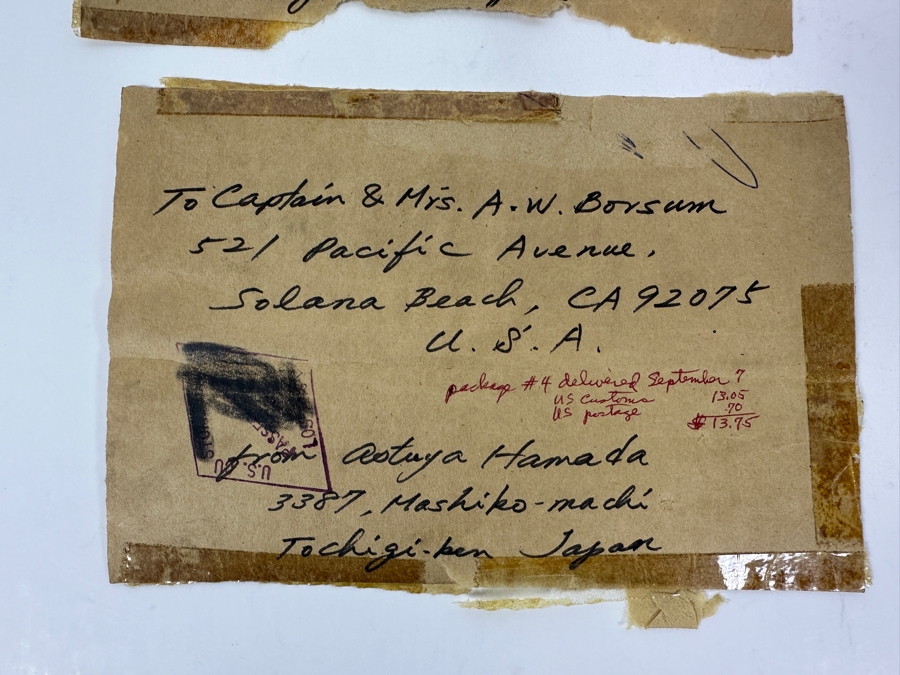 To Captain & Mrs. A. W. Borsum
521 Pacific Avenue.
Solana Beach, CA 92075
U. S. A.
package #4 delivered September 7
US Customs 13.05
US postage .70
$13.75
U.S.
from Aotuya Hamada
3387, Mashiko-machi
Tochigi-ken Japan